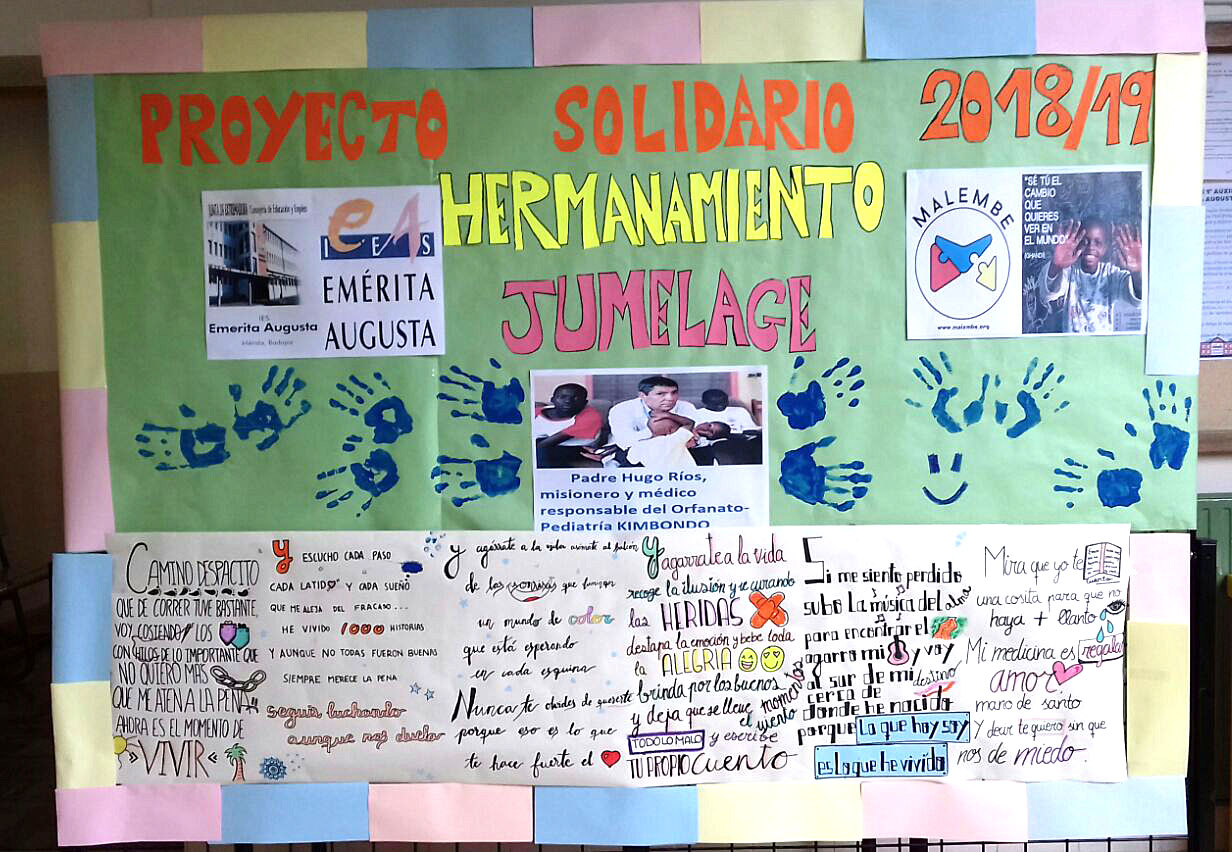 PROYECTO SOLIDARIO 2018/19
HERMANAMIENTO
JUMELAGE
JUNTA DE EXTREMADURA Consejería de Educación y Empleo
IES
Emerita Augusta
Mérida, Badajoz
eA
IES
EMÉRITA
AUGUSTA
MALEMBE
www.malembe.org
"SÉ TÚ EL
CAMBIO
QUE
QUIERES
VER EN
EL MUNDO"
(GHANDI)
Padre Hugo Ríos,
misionero y médico
responsable del Orfanato-
Pediatría KIMBONDO
CAMINO DESPACITO
QUE DE CORRER TUVE BASTANTE,
VOY COSIENDO LOS
CON HILOS DE LO IMPORTANTE QUE
NO QUIERO MAS
QUE ME ATEN A LA PENA
AHORA ES EL MOMENTO DE
"VIVIR"
Y ESCUCHO CADA PASO
CADA LATIDO Y CADA SUEÑO
QUE ME ALEJA DEL FRACASO...
HE VIVIDO 1000 HISTORIAS
Y AUNQUE NO TODAS FUERON BUENAS
SIEMPRE MERECE LA PENA
seguir luchando
aunque nos duela
Y agárrate a la vida asómate al balcón
de las sonrisas que
un mundo de color
que está esperando
en cada esquina
Nunca te olvides de quererte
porque eso es lo que
te hace fuerte el
Y agarrate a la vida
recoge la ilusión y ve curando
las HERIDAS
destapa la emoción y bebe toda
la ALEGRIA
brinda por los buenos momentos
y deja que se lleve el viento
TODO LO MALO y escribe
TU PROPIO cuento
Si me siento perdido
subo La música del alma
para encontrar el
agarro mi y voy
al sur de mi destino
cerca de
donde he nacido
porque Lo que hoy soy
es Lo que he vivido
Mira que yo te cuento
una cosita para que no
haya + llanto
Mi medicina es regalar
amor
mano de santo
Y decir te quiero sin que
nos de miedo.